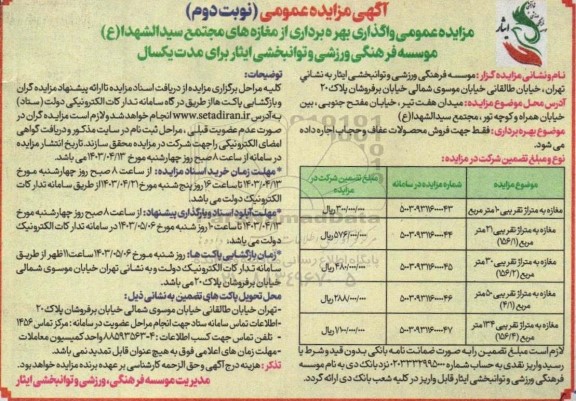 آگهی مزایده عمومی (نوبت دوم)
مزایده عمومی واگذاری بهره برداری از مغازه های مجتمع سیدالشهدا(ع)
موسسه فرهنگی ورزشی و توانبخشی ایثار برای مدت یکسال
ایثار
نام و نشانی مزایده گزار: موسسه فرهنگی ورزشی و توانبخشی ایثار به نشانی
تهران، خیابان طالقانی خیابان موسوی شمالی خیابان برفروشان پلاک ۲۰
آدرس محل موضوع مزایده: میدان هفت تیر، خیابان مفتح جنوبی، بین
خیابان همراه و کوچه تور، مجتمع سیدالشهدا(ع)
موضوع بهره برداری: فقط جهت فروش محصولات عفاف و حجاب اجاره داده
می شود.
نوع و مبلغ تضمین شرکت در مزایده:
موضوع مزایده
شماره مزایده در سامانه
مبلغ تضمین شرکت در مزایده
مغازه به متراژ تقریبی ۱۰ متر مربع
۵۰۰۳۰۹۳۱۱۶۰۰۰۰۴۳
۳۰۰/۰۰۰/۰۰۰ ریال
مغازه به متراژ تقریبی ۲۱ متر مربع (۱۵۶/۱)
۵۰۰۳۰۹۳۱۱۶۰۰۰۰۴۴
۵۷۶/۰۰۰/۰۰۰ ریال
مغازه به متراژ تقریبی ۳۰ متر مربع (۱۵۶/۲)
۵۰۰۳۰۹۳۱۱۶۰۰۰۰۴۵
۴۸۰/۰۰۰/۰۰۰ ریال
مغازه به متراژ تقریبی ۵۰ متر مربع (۴/۱)
۵۰۰۳۰۹۳۱۱۶۰۰۰۰۴۶
۲۸۸/۰۰۰/۰۰۰ ریال
مغازه به متراژ تقریبی ۱۳۴ متر مربع (۱۵۶/۴)
۵۰۰۳۰۹۳۱۱۶۰۰۰۰۴۷
۷۱۰/۰۰۰/۰۰۰ ریال
لازم است مبلغ تضمین را به صورت ضمانت نامه بانکی بدون قید و شرط یا
رسید واریز نقدی به حساب شماره نزد بانک دی به نام موسسه
فرهنگی ورزشی و توانبخشی ایثار قابل واریز در کلیه شعب بانک دی ارائه گردد.
توضیحات:
کلیه مراحل برگزاری مزایده از دریافت اسناد مزایده تا ارائه پیشنهاد مزایده گران
و بازگشایی پاکت ها از طریق درگاه سامانه تدارکات الکترونیکی دولت (ستاد)
به آدرس www.setadiran.ir انجام خواهد شد و لازم است مزایده گران در
صورت عدم عضویت قبلی، مراحل ثبت نام در سایت مذکور و دریافت گواهی
امضای الکترونیکی را جهت شرکت در مزایده محقق سازند. تاریخ انتشار مزایده
در سامانه از ساعت ۸ صبح روز چهارشنبه مورخ ۱۴۰۳/۰۴/۱۳ می باشد.
*مهلت زمان خرید اسناد مزایده: از ساعت ۸ صبح روز چهارشنبه مورخ
۱۴۰۳/۰۴/۱۳ تا ساعت ۱۶ روز پنج شنبه مورخ ۱۴۰۳/۰۴/۲۱ از طریق سامانه تدارکات
الکترونیک دولت می باشد.
*مهلت آپلود اسناد و بارگذاری پیشنهاد: از ساعت ۸ صبح روز چهارشنبه مورخ
۱۴۰۳/۰۴/۱۳ تا ساعت ۱۰ روز شنبه مورخ ۱۴۰۳/۰۵/۰۶ سامانه تدارکات الکترونیک
دولت می باشد.
*زمان بازگشایی پاکت ها: روز شنبه مورخ ۱۴۰۳/۰۵/۰۶ ساعت ۱۱ ظهر از طریق
سامانه تدارکات الکترونیک دولت و به نشانی تهران خیابان موسوی شمالی
خیابان برفروشان پلاک ۲۰ می باشد.
محل تحویل پاکت های تضمین به نشانی ذیل:
-تهران خیابان طالقانی خیابان موسوی شمالی خیابان برفروشان پلاک ۲۰
-اطلاعات تماس سامانه ستاد جهت انجام مراحل عضویت در سامانه: مرکز تماس ۱۴۵۶
- تلفن تماس جهت کسب اطلاعات: ۸۸۵۹۳۵۶۳-۴ واحد کمیسیون معاملات
-مهلت زمان های اعلامی فوق به هیچ عنوان قابل تمدید نمی باشد.
تذکر: هزینه درج آگهی و حق الزحمه کارشناسی بر عهده برنده مزایده خواهد بود.
مدیریت موسسه فرهنگی، ورزشی و توانبخشی ایثار